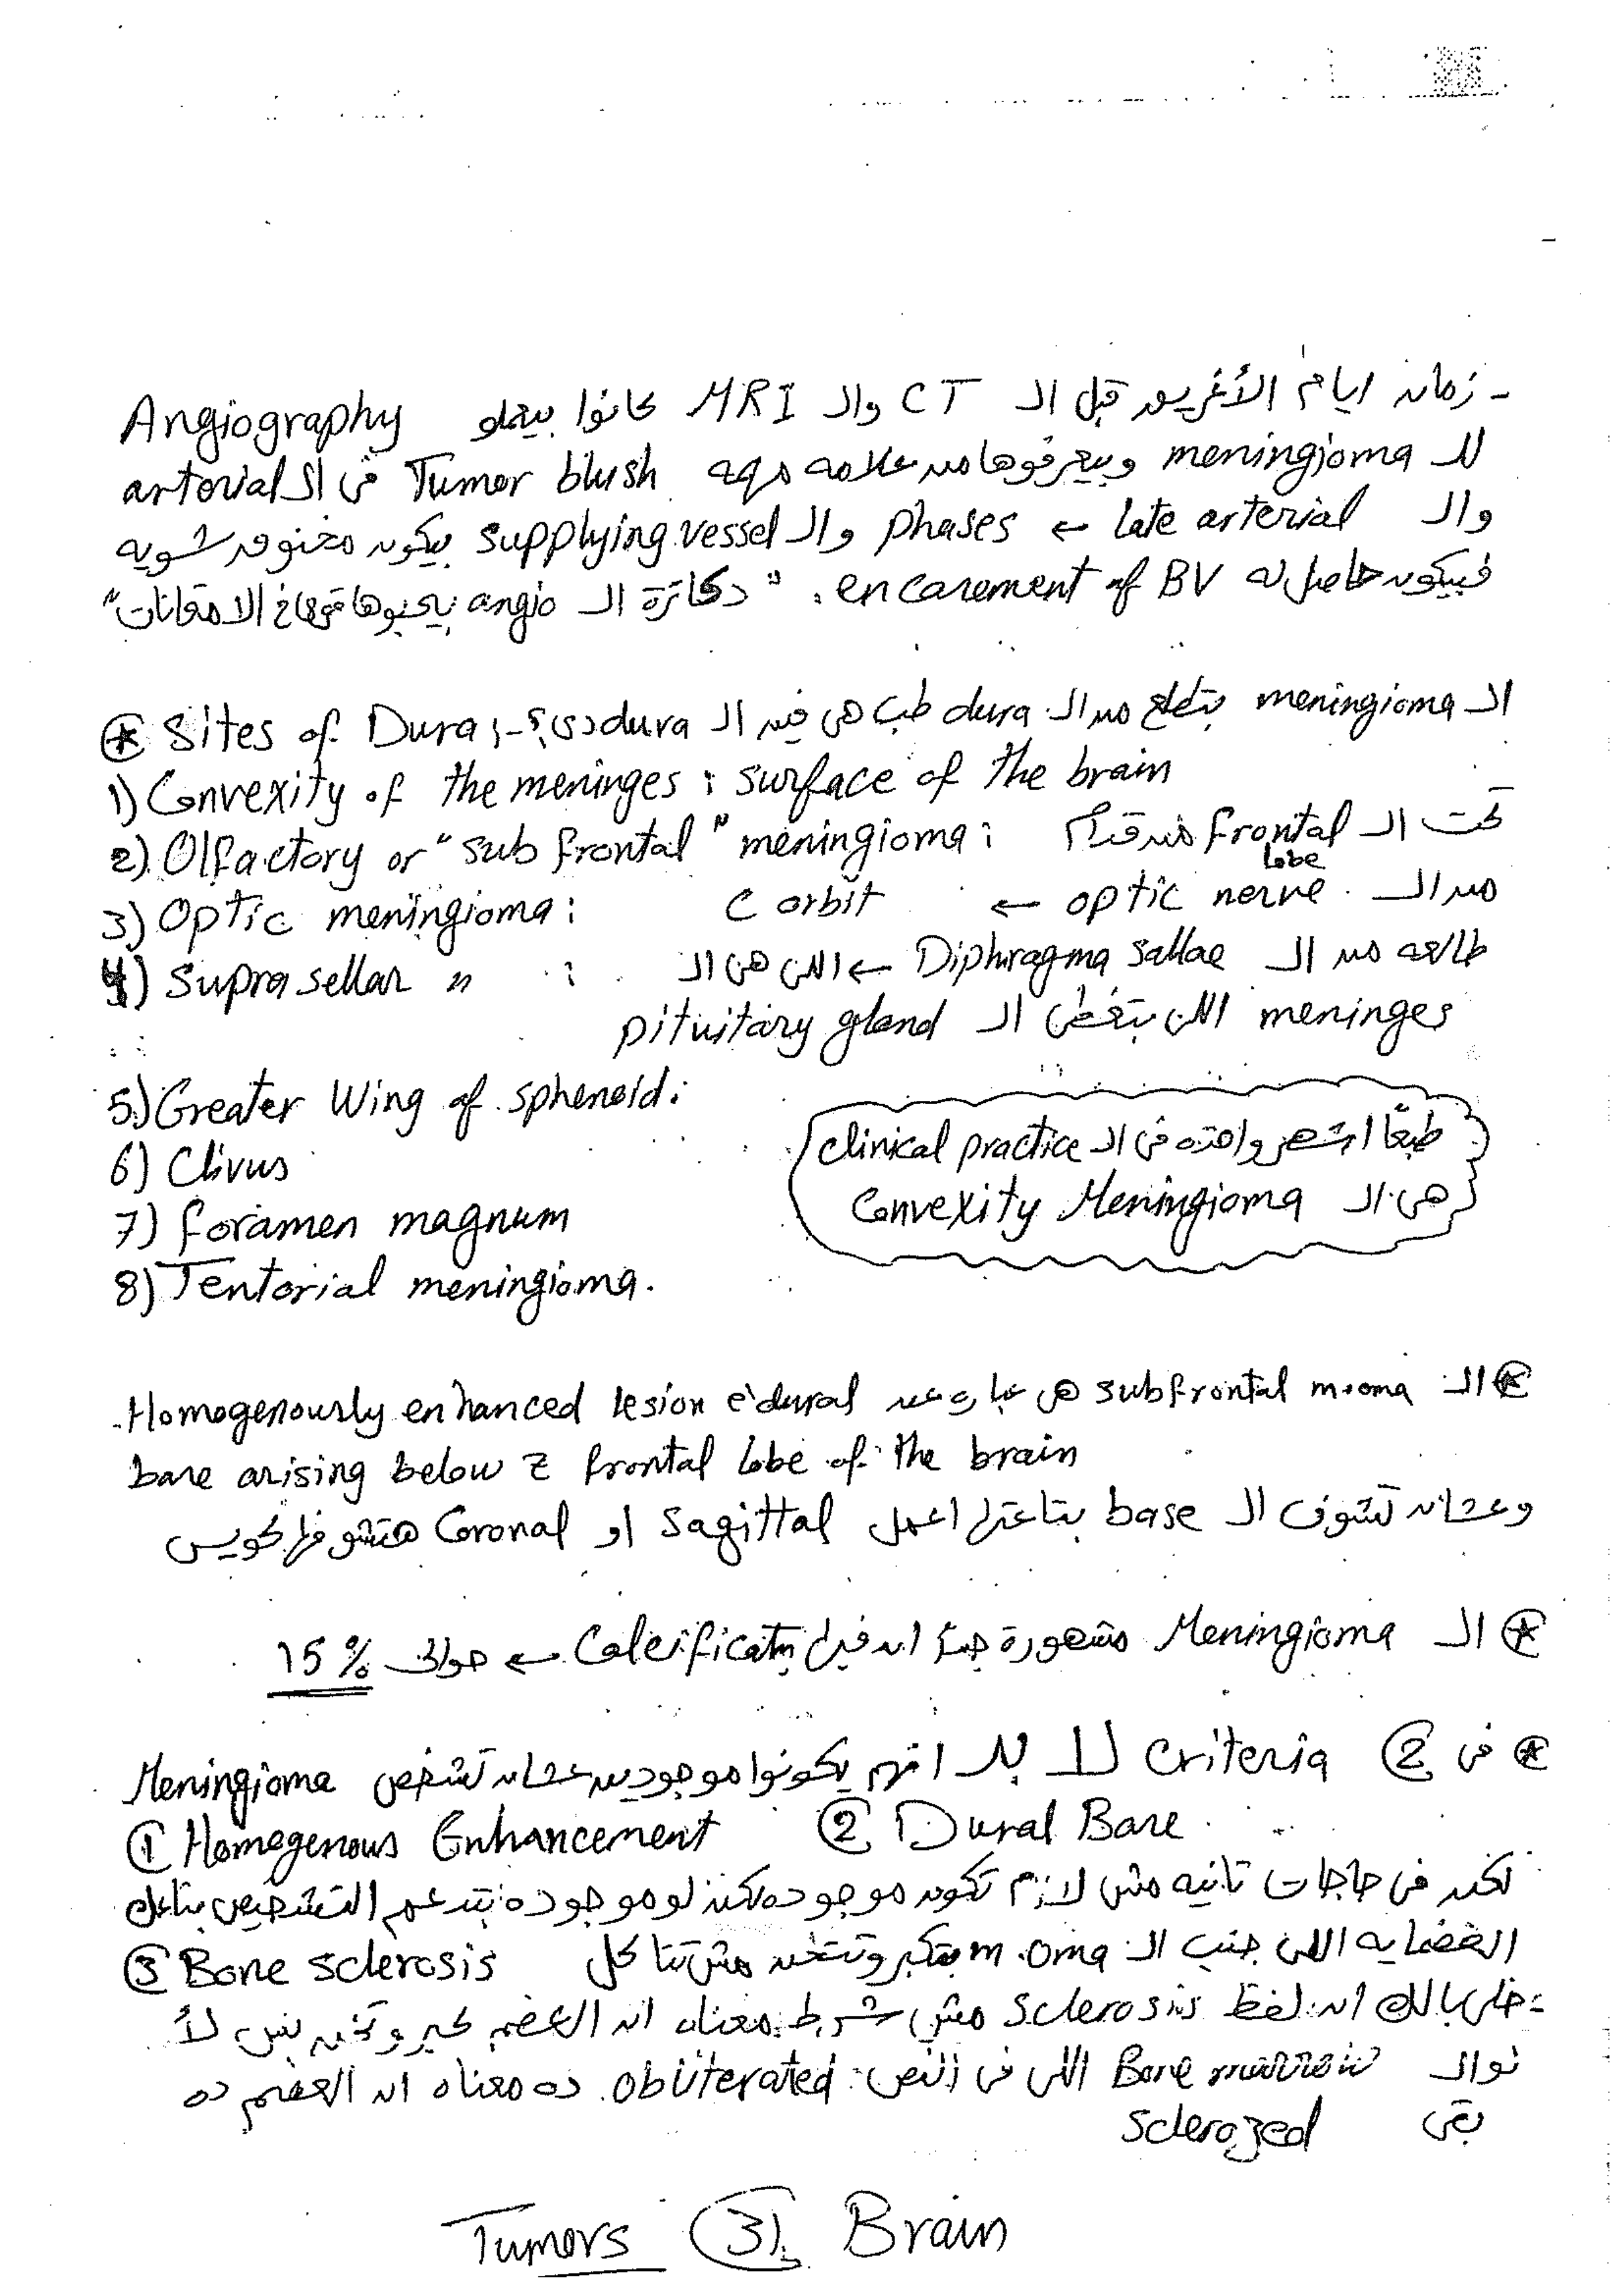 - زمان ايام الأغريق قبل الـ CT والـ MRI كانوا بيعملو Angiography
للـ meningioma وبيعرفوها من علامه مهمه Tumor blush في الـ artorial
والـ late arterial ← phases والـ supplying vessel بيكون مخنوق شويه
فبيكون حاصل له encasement of BV. "دكاترة الـ angio بيحبوها قوى في الامتحانات"
الـ meningioma بتطلع من الـ dura طب هى فين الـ dura دى؟ -: Sites of Dura ⊛
1) Convexity of the meninges : surface of the brain
2) Olfactory or "sub frontal" meningioma : تحت الـ frontal lobe من قدام
3) Optic meningioma : من الـ optic nerve ← C orbit
4) Supra sellar " : طالعه من الـ Diphragma sallae ← اللى هى الـ
meninges اللى بتغطى الـ pituitary gland
5) Greater Wing of sphenoid :
6) Clivus
7) foramen magnum
8) Tentorial meningioma.
طبعًا اشهر واحده فى الـ clinical practice
هى الـ Convexity Meningioma
⊛ الـ subfrontal m.oma هى عباره عن Homogenously enhanced lesion c̄ dural
base arising below z frontal lobe of the brain
وعشان تشوف الـ base بتاعتها اعمل Sagittal او Coronal هتشوفها كويس
⊛ الـ Meningioma مشهورة جدًا ان فيها Calcificatⁿ ← حوالى 15%
⊛ فى ② criteria لا بد انهم يكونوا موجودين عشان تشخص Meningioma
① Homogenous Enhancement ② Dural Base.
لكن فى حاجات تانيه مش لازم تكون موجوده لكن لو موجوده بتدعم التشخيص بتاعك
③ Bone sclerosis العضمايه اللى جنب الـ m.oma بتكبر وتتخن مش تتاكل
- خلى بالك ان لفظ sclerosis مش شرط معناه ان العضم كبر وتخن بس لأ
نوالـ Bone marrow اللى فى النص obliterated ده معناه ان العضم ده
بقى sclerozed
Tumors ③ Brain